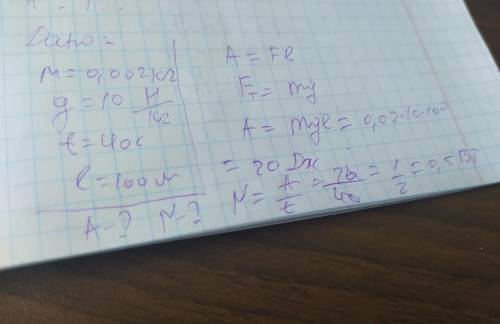 Дано =
m = 0,002 кг
g = 10 Н/кг
t = 40 с
l = 100 м
A - ? N - ?
A = Fl
Fт = mg
A = mgl = 0,02·10·100
= 20 Дж
N = A/t = 20/40 = 1/2 = 0,5 Вт